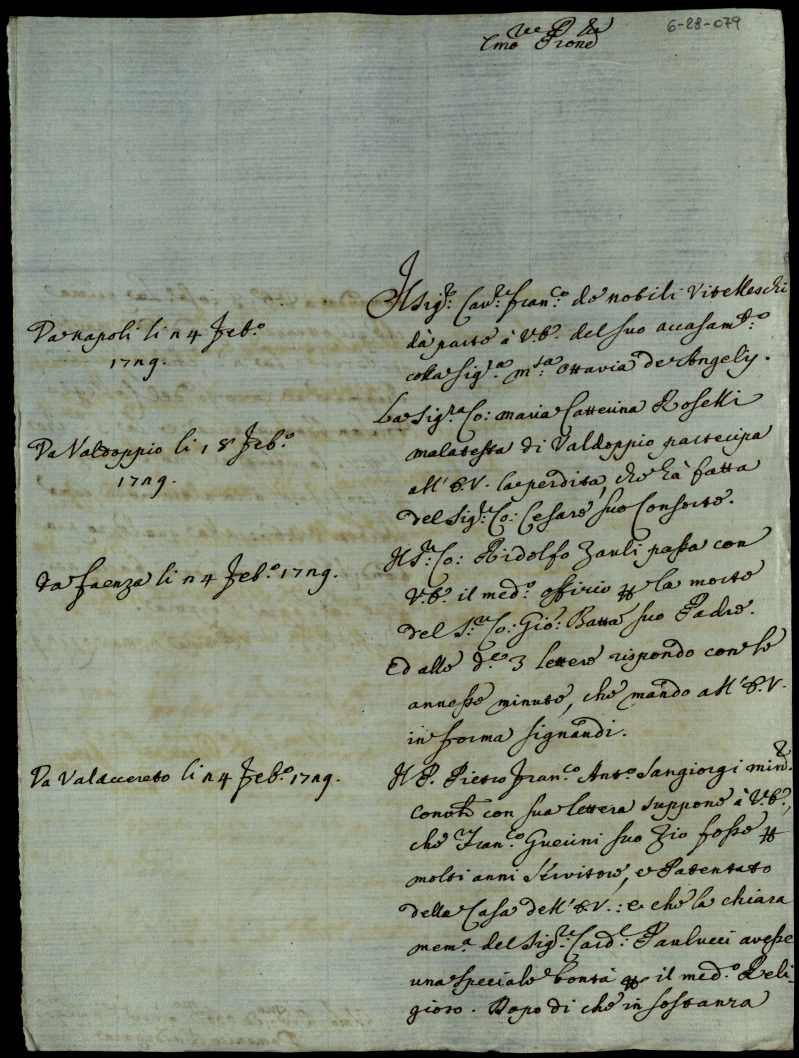 6-28-079
Emo Prone
Da Napoli li n4 Feb.o
17n9.
Il Sig.r Cav.r Fran.co de nobili Vitelleschi
dà parte à V.E. del suo accasam.to
colla Sig.ra m.sa Ottavia de Angelij.
Da Valdoppio li 18 Feb.o
17n9.
La Sig.ra Co: Maria Catterina Roselli
Malatesta di Valdoppio partecipa
all'E.V. la perdita, che hà fatta
del Sig.r Co: Cesare suo Consorte.
Da Faenza li n4 Feb.o 17n9.
Il S.r Co: Ridolfo Zauli passa con
V.E. il med.o offizio per la morte
del S.r Co: Gio: Batta suo Padre.
Ed alle d.e 3 lettere rispondo con le
annesse minute, che mando all'E.V.
in forma signandi.
Da Valdccereto li n4 Feb.o 17n9.
Il P. Pietro Fran.co Ant.o Sangiorgi min.r
Conv.le con sua lettera suppone à V.E.,
che Fran.co Guerini suo Zio fosse per
molti anni Servitore, e Patentato
della Casa dell'E.V.: e che la chiara
mem.a del Sig.r Card.l Paulucci avesse
una speciale bontà per il med.o Reli-
gioso. Dopo di che in sostanza